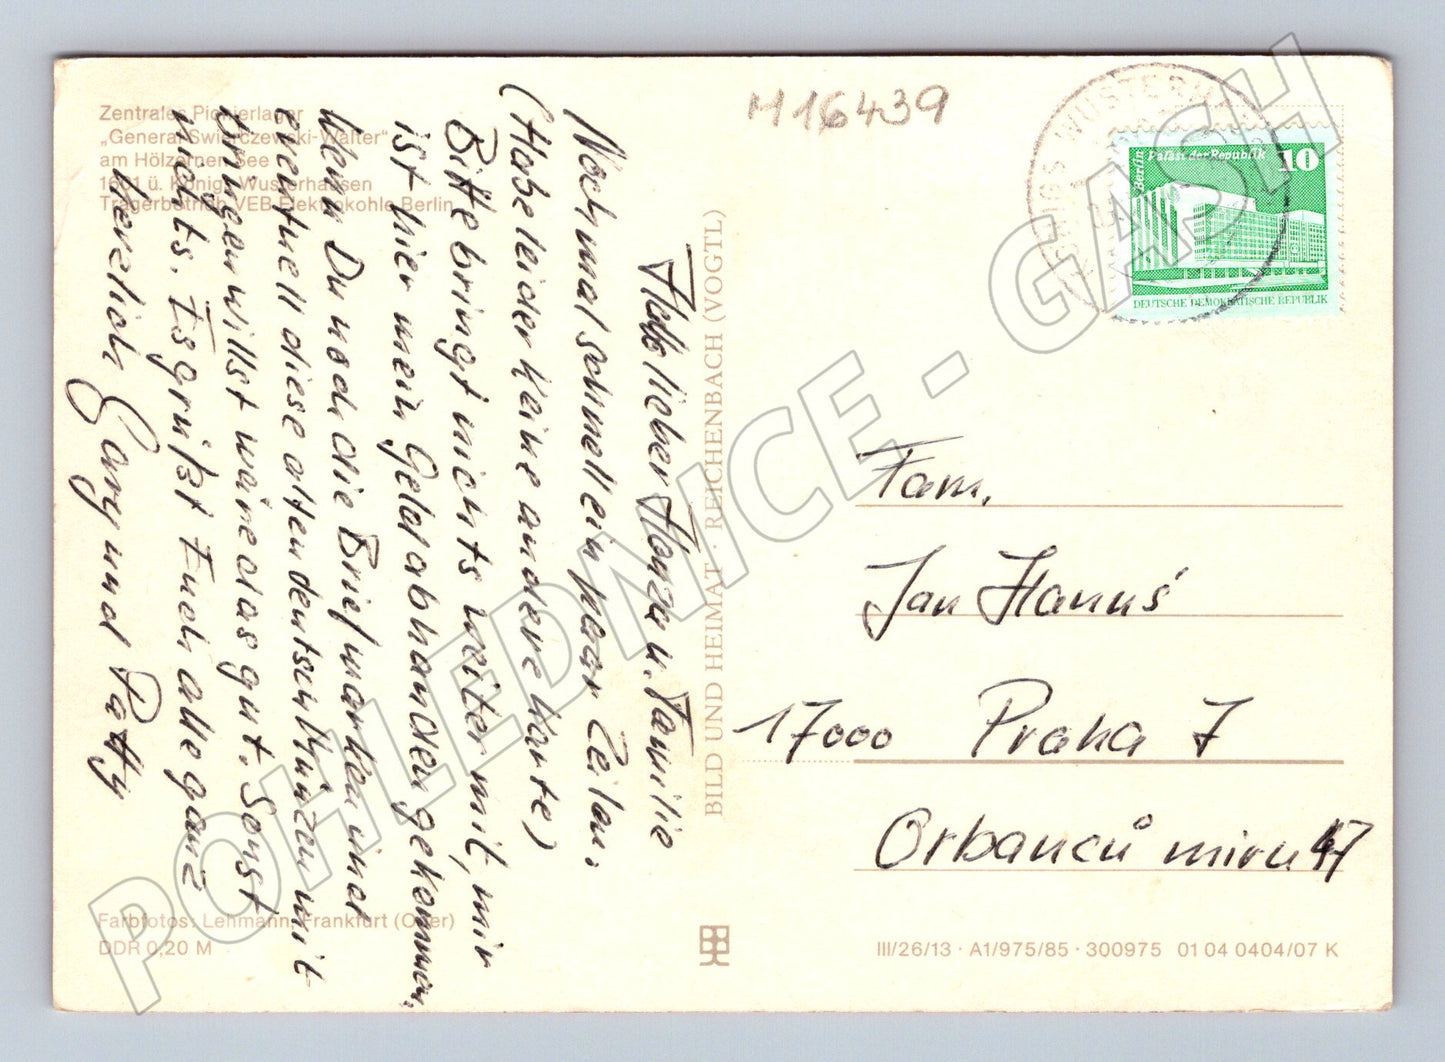 Zentrales Pionierlager
„General Swierczewski-Walter"
am Hölzernen See
1601 ü. Königs Wusterhausen
Trägerbetrieb VEB Elektrokohle Berlin
M16439
KÖNIGS WUSTERH
Berlin
Palast der Republik
10
DEUTSCHE DEMOKRATISCHE REPUBLIK
Hallo lieber Honza u. Familie
Nochmal schnell ein paar Zeilen.
(Habe leider keine andere Karte)
Bitte bringt nichts weiter mit, mir
ist hier mein Geld abhanden gekommen.
Wenn Du noch die Briefmarken und
eventuell diese alten deutsch Münzen mit
bringen willst wäre das gut. Sonst
nichts. Es grüßt Euch alle ganz
herzlich Gary und Patty
BILD UND HEIMAT · REICHENBACH (VOGTL)
Fam.
Jan Hanuš
17000 Praha 7
Orbanců miru 47
Farbfotos: Lehmann, Frankfurt (Oder)
DDR 0,20 M
III/26/13 · A1/975/85 · 300975 01 04 0404/07 K
POHLEDNICE - GASH